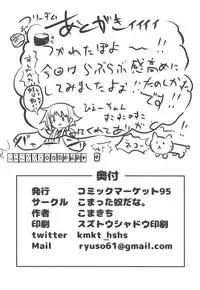 フリーダム
あとがきィィィィ
つかれたぽよ〜!!
今回はらぶらぶ感高めに
してみましたよ!!たのしかった
です!!
ひぇーちゃん
むこむこ
ネコー
奥付
発行 コミックマーケット95
サークル こまった奴だな。
作者 こまきち
印刷 スズトウシャドウ印刷
twitter kmkt_hshs
Mail ryuso61@gmail.com